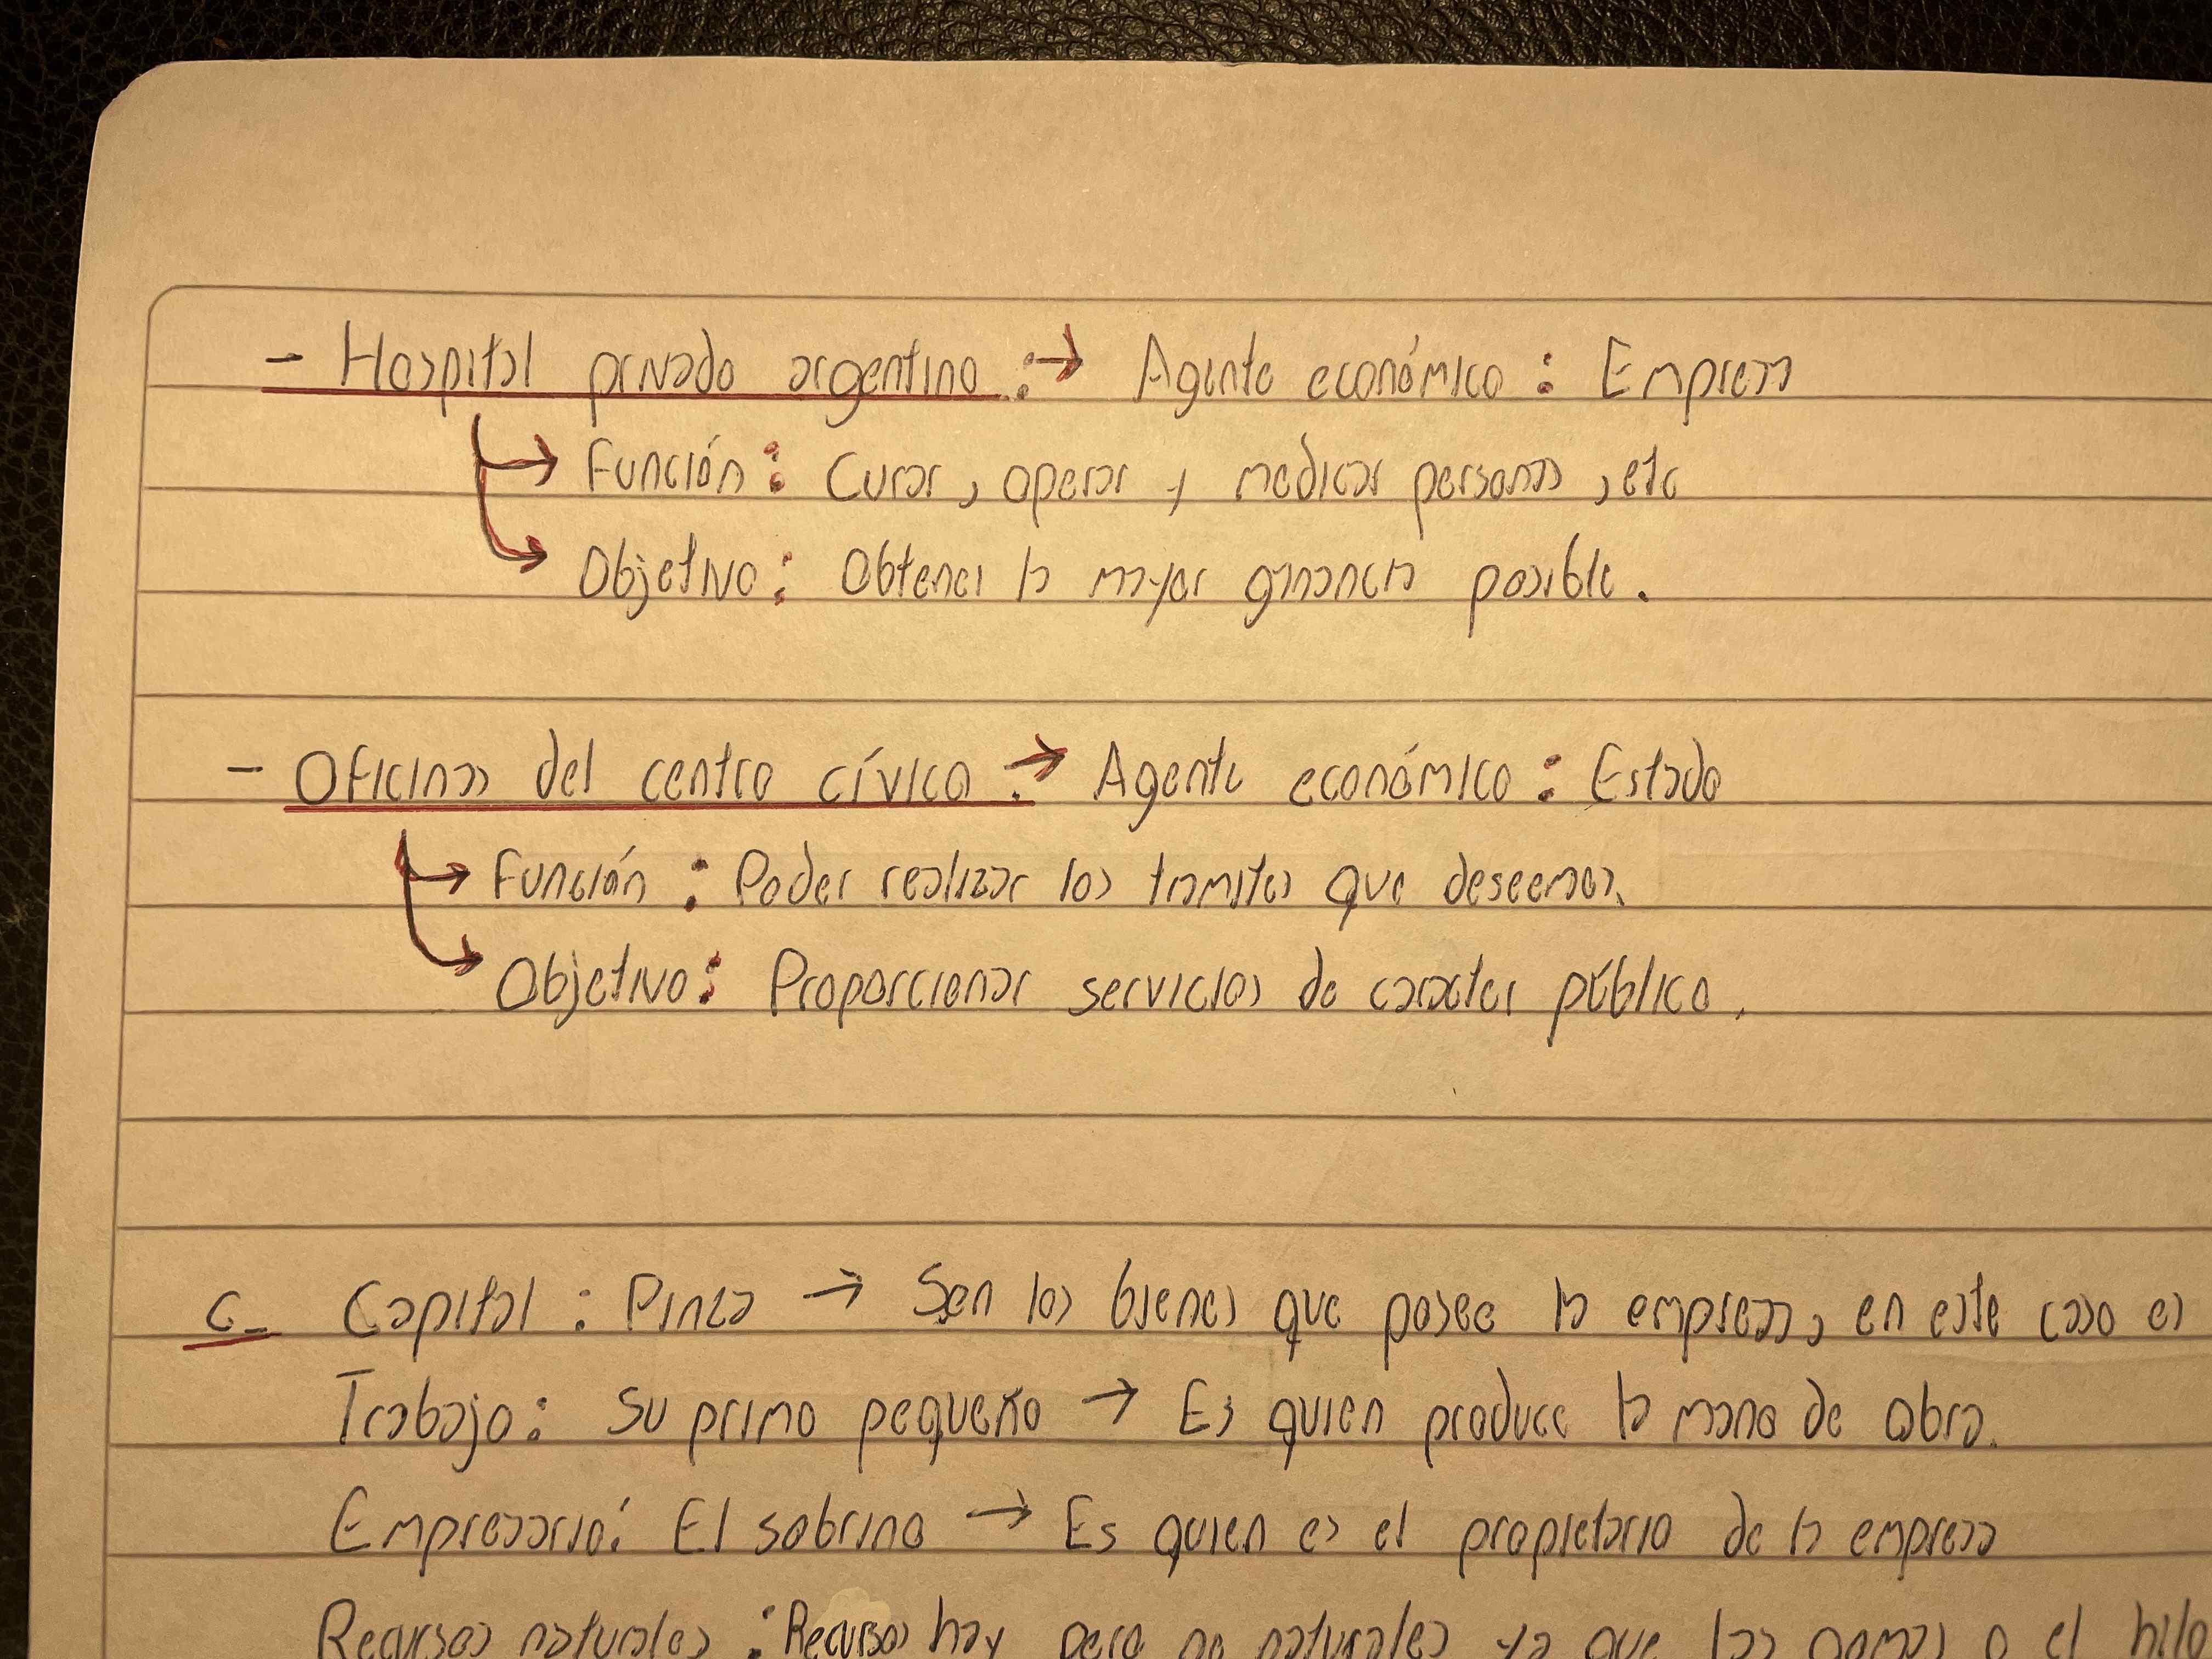 - Hospital privado argentino :→ Agente económico : Empresa
→ Función : Curar, operar y medicar personas, etc
→ Objetivo : Obtener la mayor ganancia posible.
- Oficinas del centro cívico. → Agente económico : Estado
→ Función : Poder realizar los tramites que deseemos.
→ Objetivo : Proporcionar servicios de caracter público.
c- Capital : Pinza → Son los bienes que posee la empresa, en este caso es
Trabajo : Su primo pequeño → Es quien produce la mano de obra.
Empresario : El sobrino → Es quien es el propietario de la empresa
Recursos naturales : Recursos hay pero no naturales ya que las gomas o el hilo